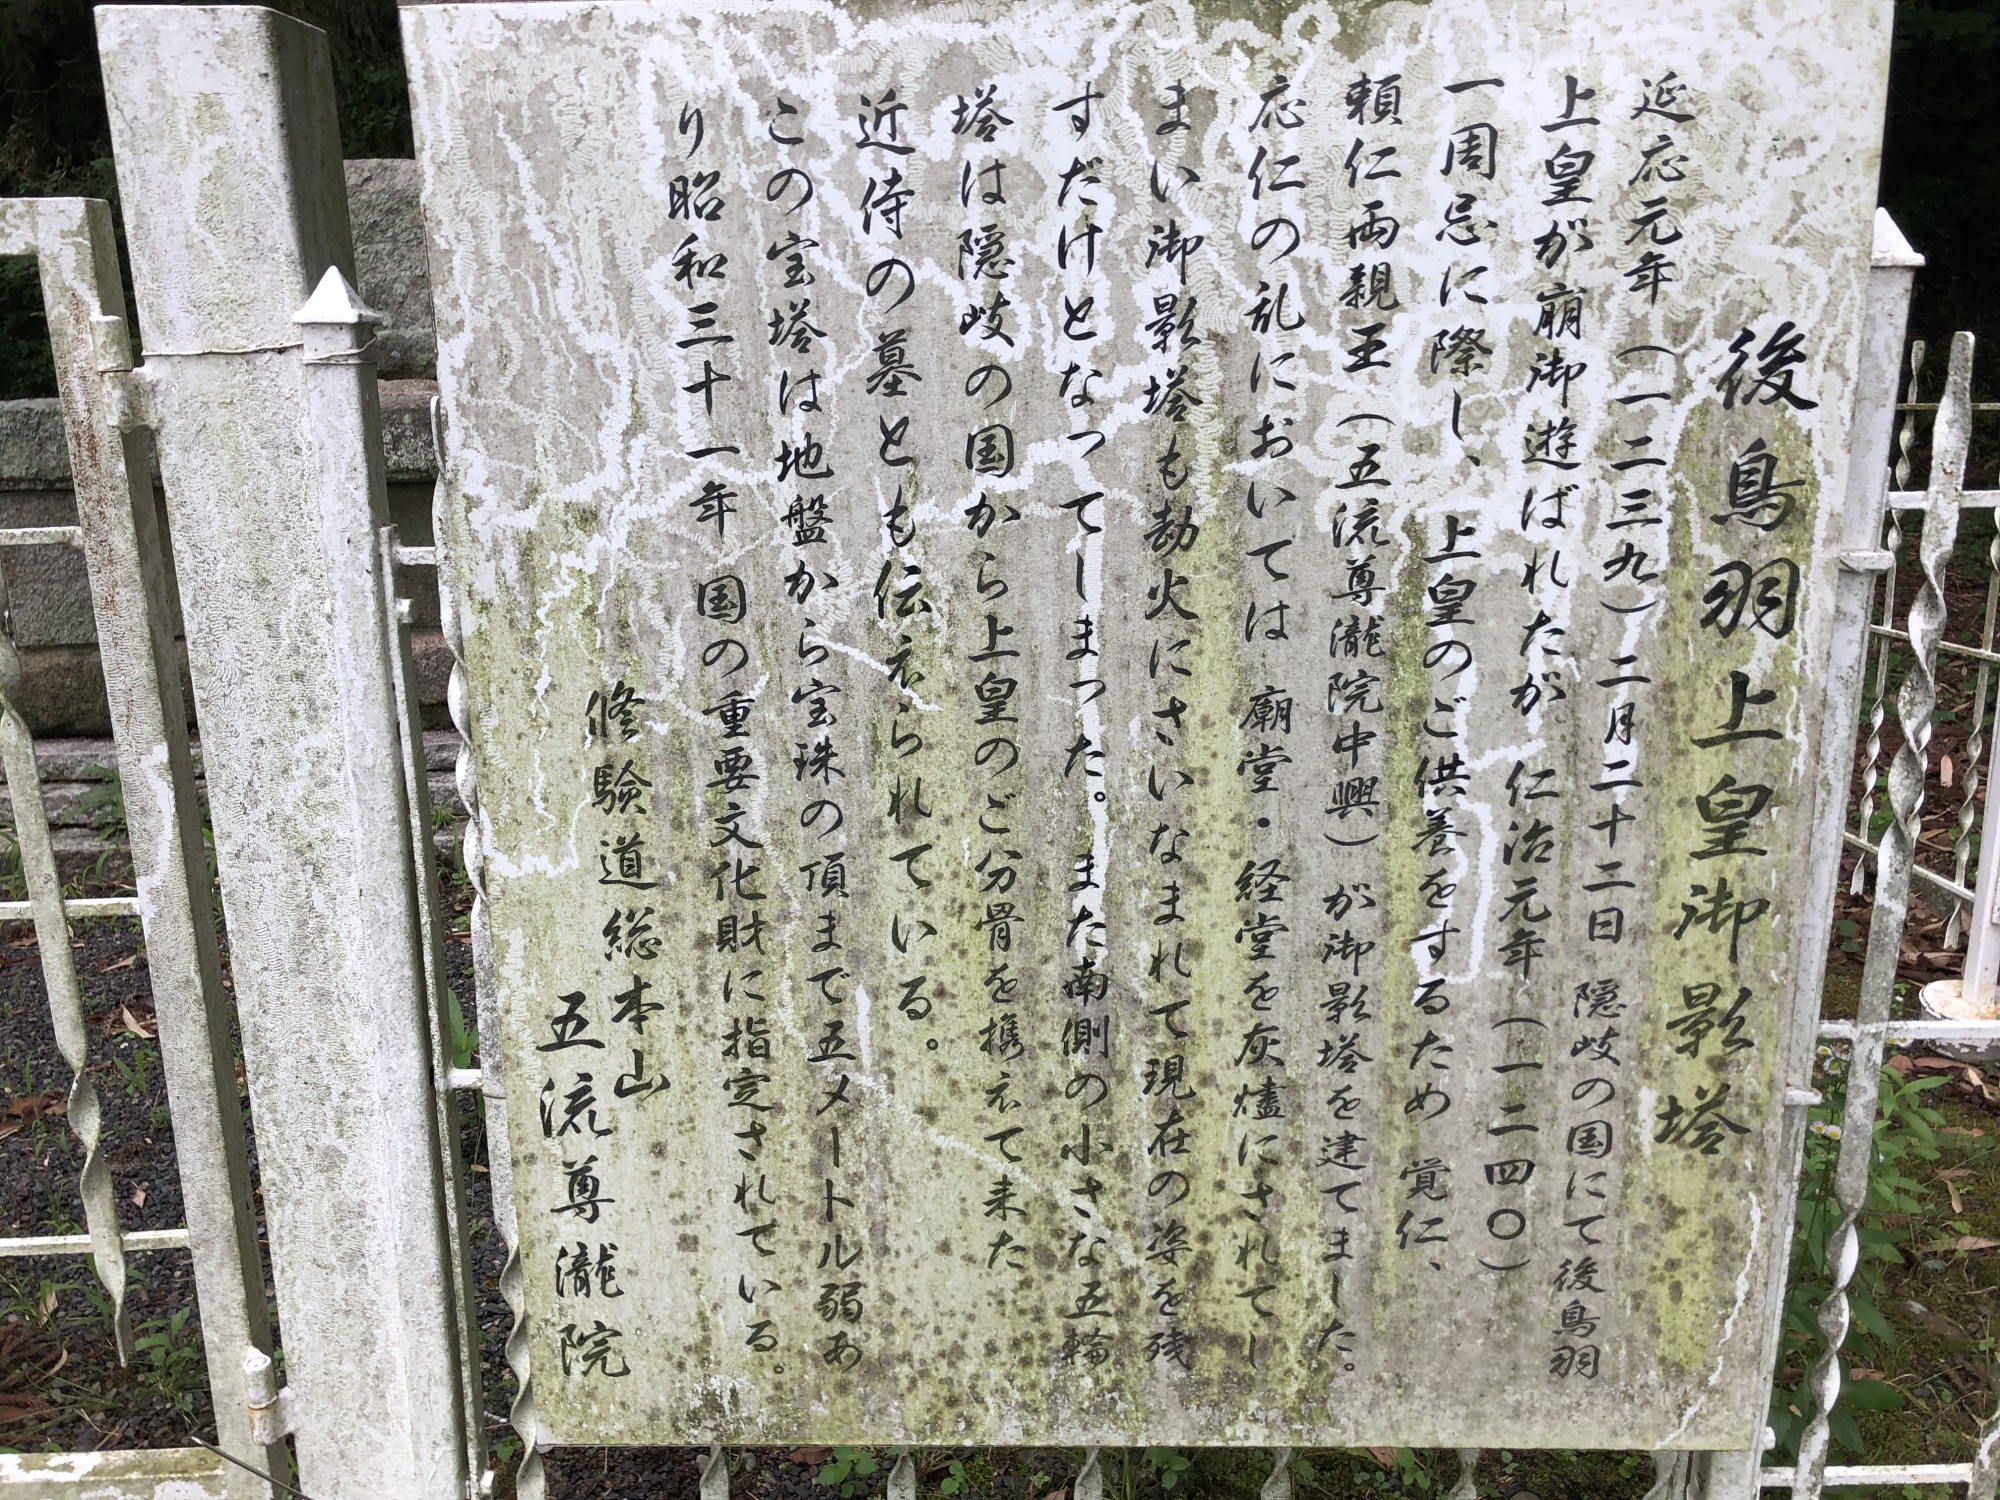 後鳥羽上皇御影塔
延応元年（一二三九）二月二十二日 隠岐の国にて後鳥羽
上皇が崩御遊ばれたが 仁治元年（一二四〇）
一周忌に際し、上皇のご供養をするため 覚仁、
頼仁両親王（五流尊瀧院中興）が御影塔を建てました。
応仁の乱においては 廟堂・経堂を灰燼にされてし
まい御影塔も劫火にさいなまれて現在の姿を残
すだけとなってしまった。また南側の小さな五輪
塔は隠岐の国から上皇のご分骨を携えて来た
近侍の墓とも伝えられている。
この宝塔は地盤から宝珠の頂まで五メートル弱あ
り昭和三十一年 国の重要文化財に指定されている。
修験道総本山
五流尊瀧院